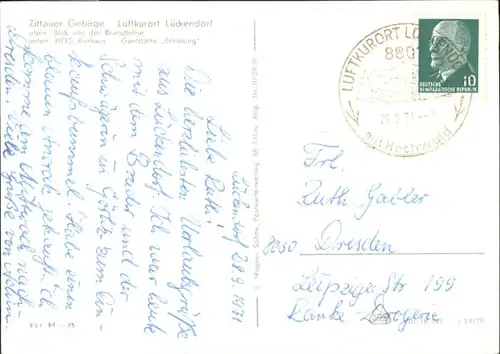 Zittauer Gebirge. Luftkurort Lückendorf
oben: Blick von der Brandhöhe
unten: HOG Kurhaus Gaststätte „Erholung"
Lückendorf 28.9.1971
Liebe Ruth!
Die herzlichsten Urlaubsgrüße
aus Lückendorf. Ich war heute
mit dem Bruder und der
Schwägerin in Görlitz zum Ein-
kaufsbummel. Habe einen
blauen Anorak gekauft. Ich
komme am Mittwoch nach
Dresden. Viele Grüße von
EVP M –,25
E. Wagner Söhne, Postkartenverlag, Zittau
LUFTKURORT LÜCKENDORF
8801
mit Hochwald
DEUTSCHE
DEMOKRATISCHE REPUBLIK
10
Frl.
Ruth Gabler
8050 Dresden
Leipziger Str 199
Ranke-Drogerie